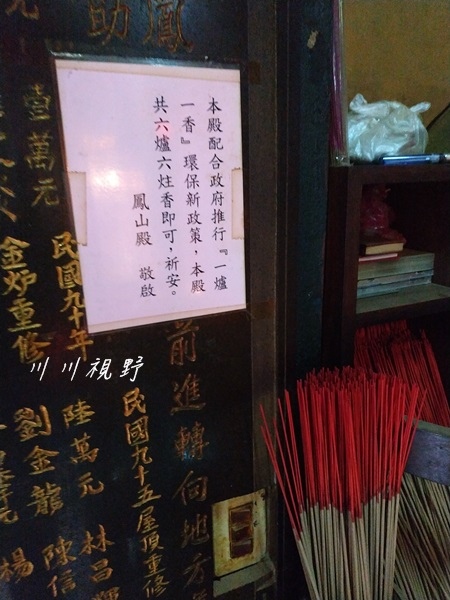 本殿配合政府推行『一爐
一香』環保新政策，本殿
共六爐六炷香即可，祈安。
鳳山殿 敬啟
鳳
助
前進轉向地方
民國九十五屋頂重修
林昌
陸萬元 陳信
民國九十年
劉金龍
金炉重修
壹萬元
楊
川川視野